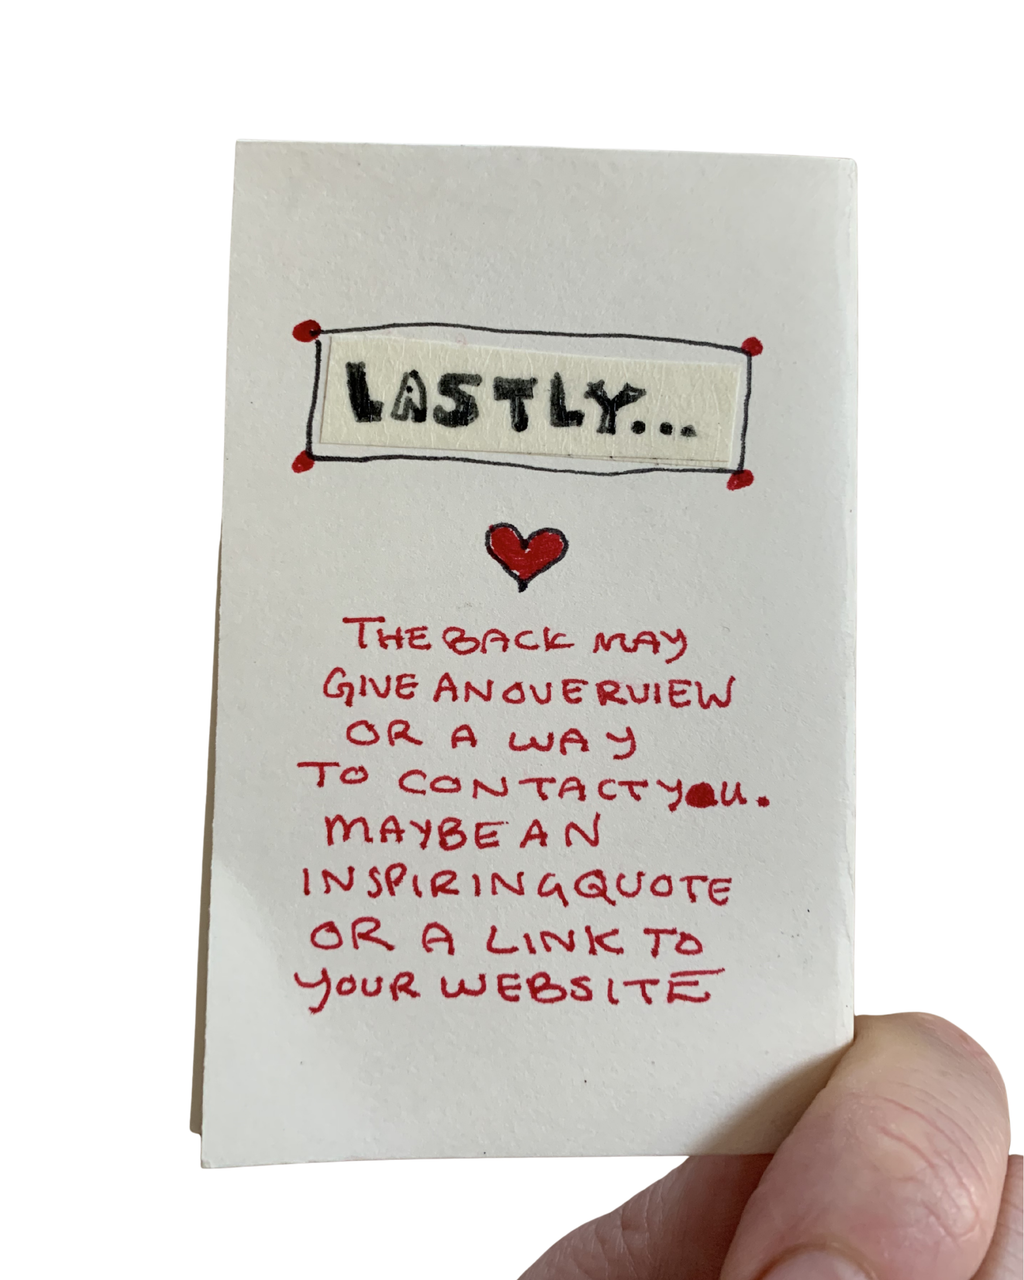 LASTLY...
THE BACK MAY
GIVE AN OVERVIEW
OR A WAY
TO CONTACT YOU.
MAYBE AN
INSPIRING QUOTE
OR A LINK TO
YOUR WEBSITE